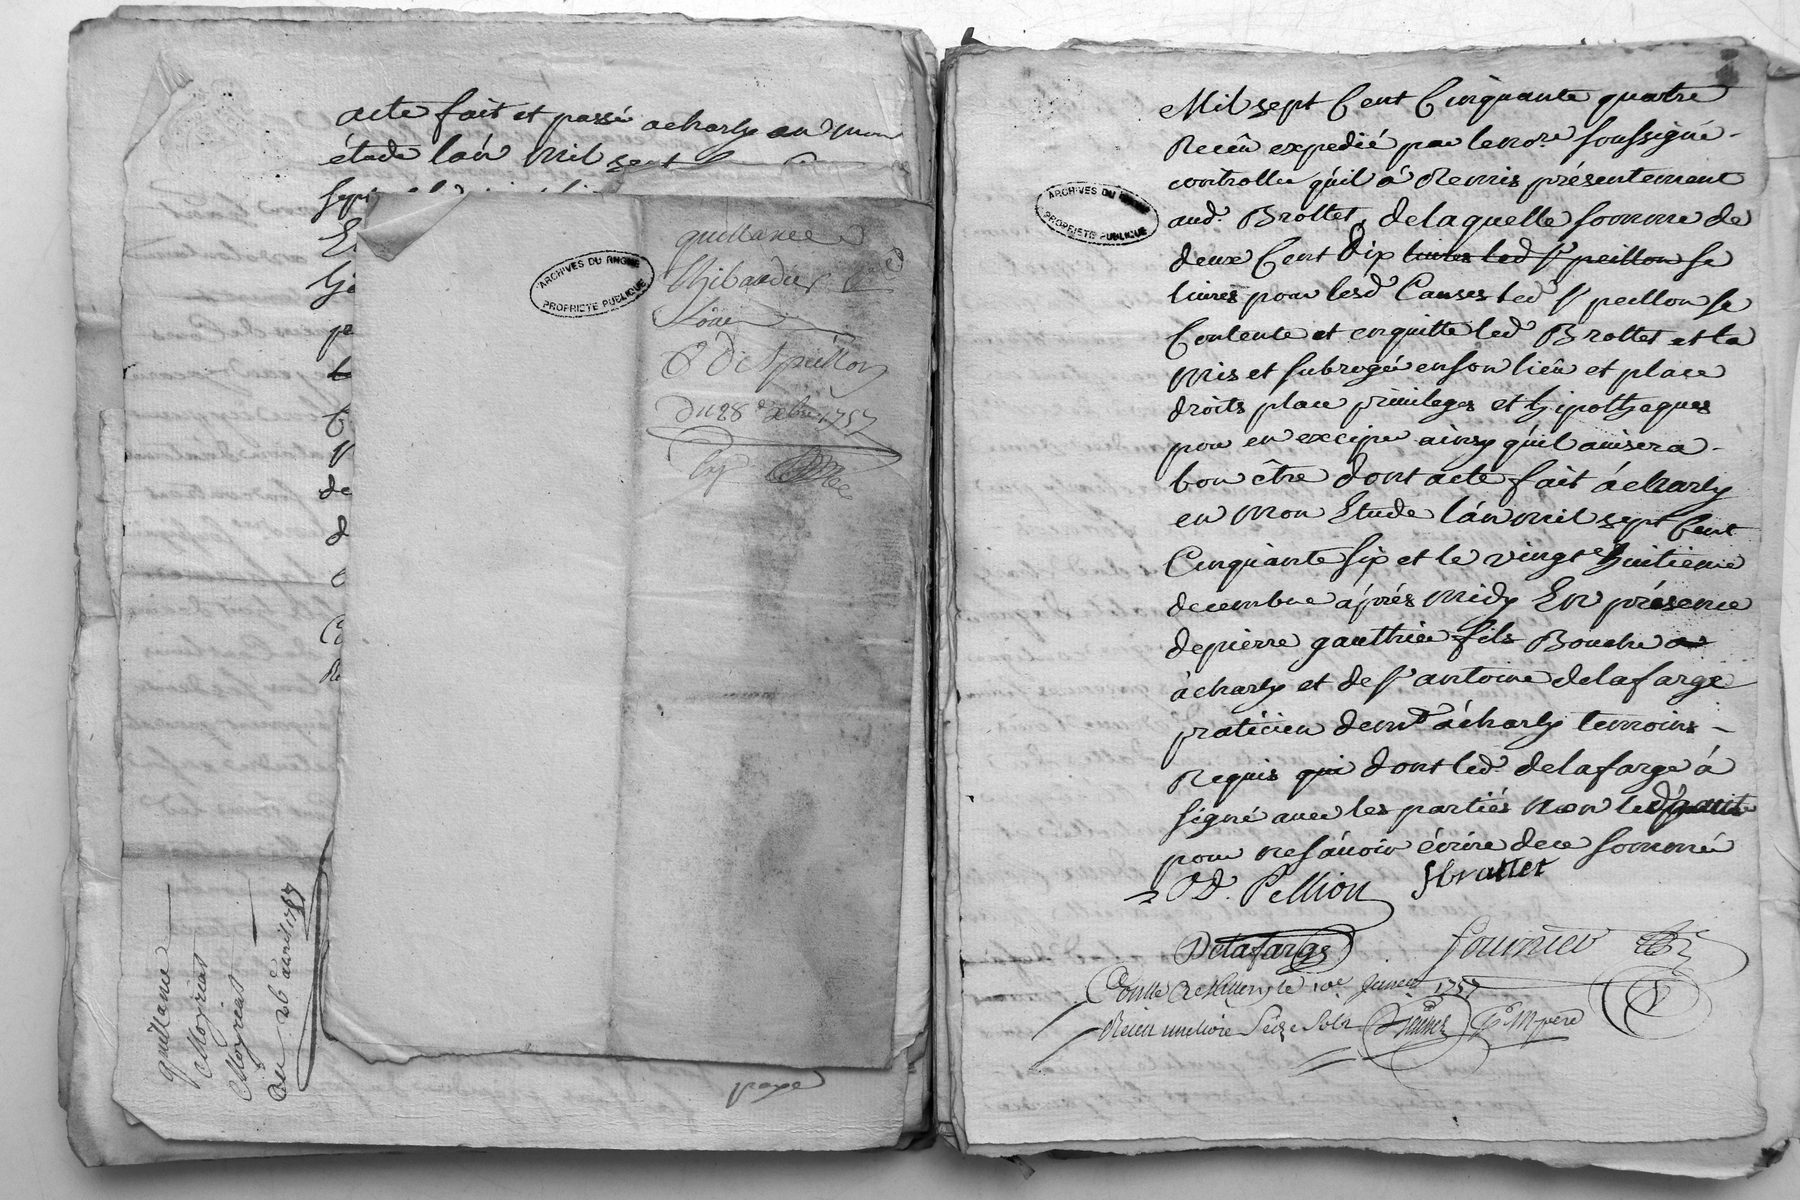 acte fait et passé a charly en mon
étude lán mil sept
sept
pe
de
d
quittance
Thibaudier
Peillon
Du 28e Xbre 1757
Exp
ARCHIVES DU RHONE
PROPRIETE PUBLIQUE
quittance
Moyriat
Moyriat
Du 26e avril 1757
paye
Mil sept Cent Cinquante quatre
Receu expedié par le nore soussigné
controllé quil á Remis présentement
aud. Brottet, de laquelle somme de
deux Cent Dix livres led Sr peillon se
livres pour lesd Causes led Sr peillon se
Contente et en quitte led Brottet et la
mis et subrogé en son lieu et place
droits place privileges et hipotheques
pour en exciper ainsy quil avisera
bon être dont acte fait á charly
en mon Etude lán mil sept Cent
Cinquante six et le vingt huitieme
decembre áprés midy En présence
de pierre gauthier fils Boucher
á charly et de Sr antoine delafarge
praticien demt á charly temoins
Requis qui dont led. delafarge á
signé avec les partiés non led
pour ne sávoir écrire de ce sommé
Peillion
Sbrattet
Delafarge
fournier
ARCHIVES DU RHONE
PROPRIETE PUBLIQUE
Conllé le 10e Janvier 1757
Receu une livre Seize Sols